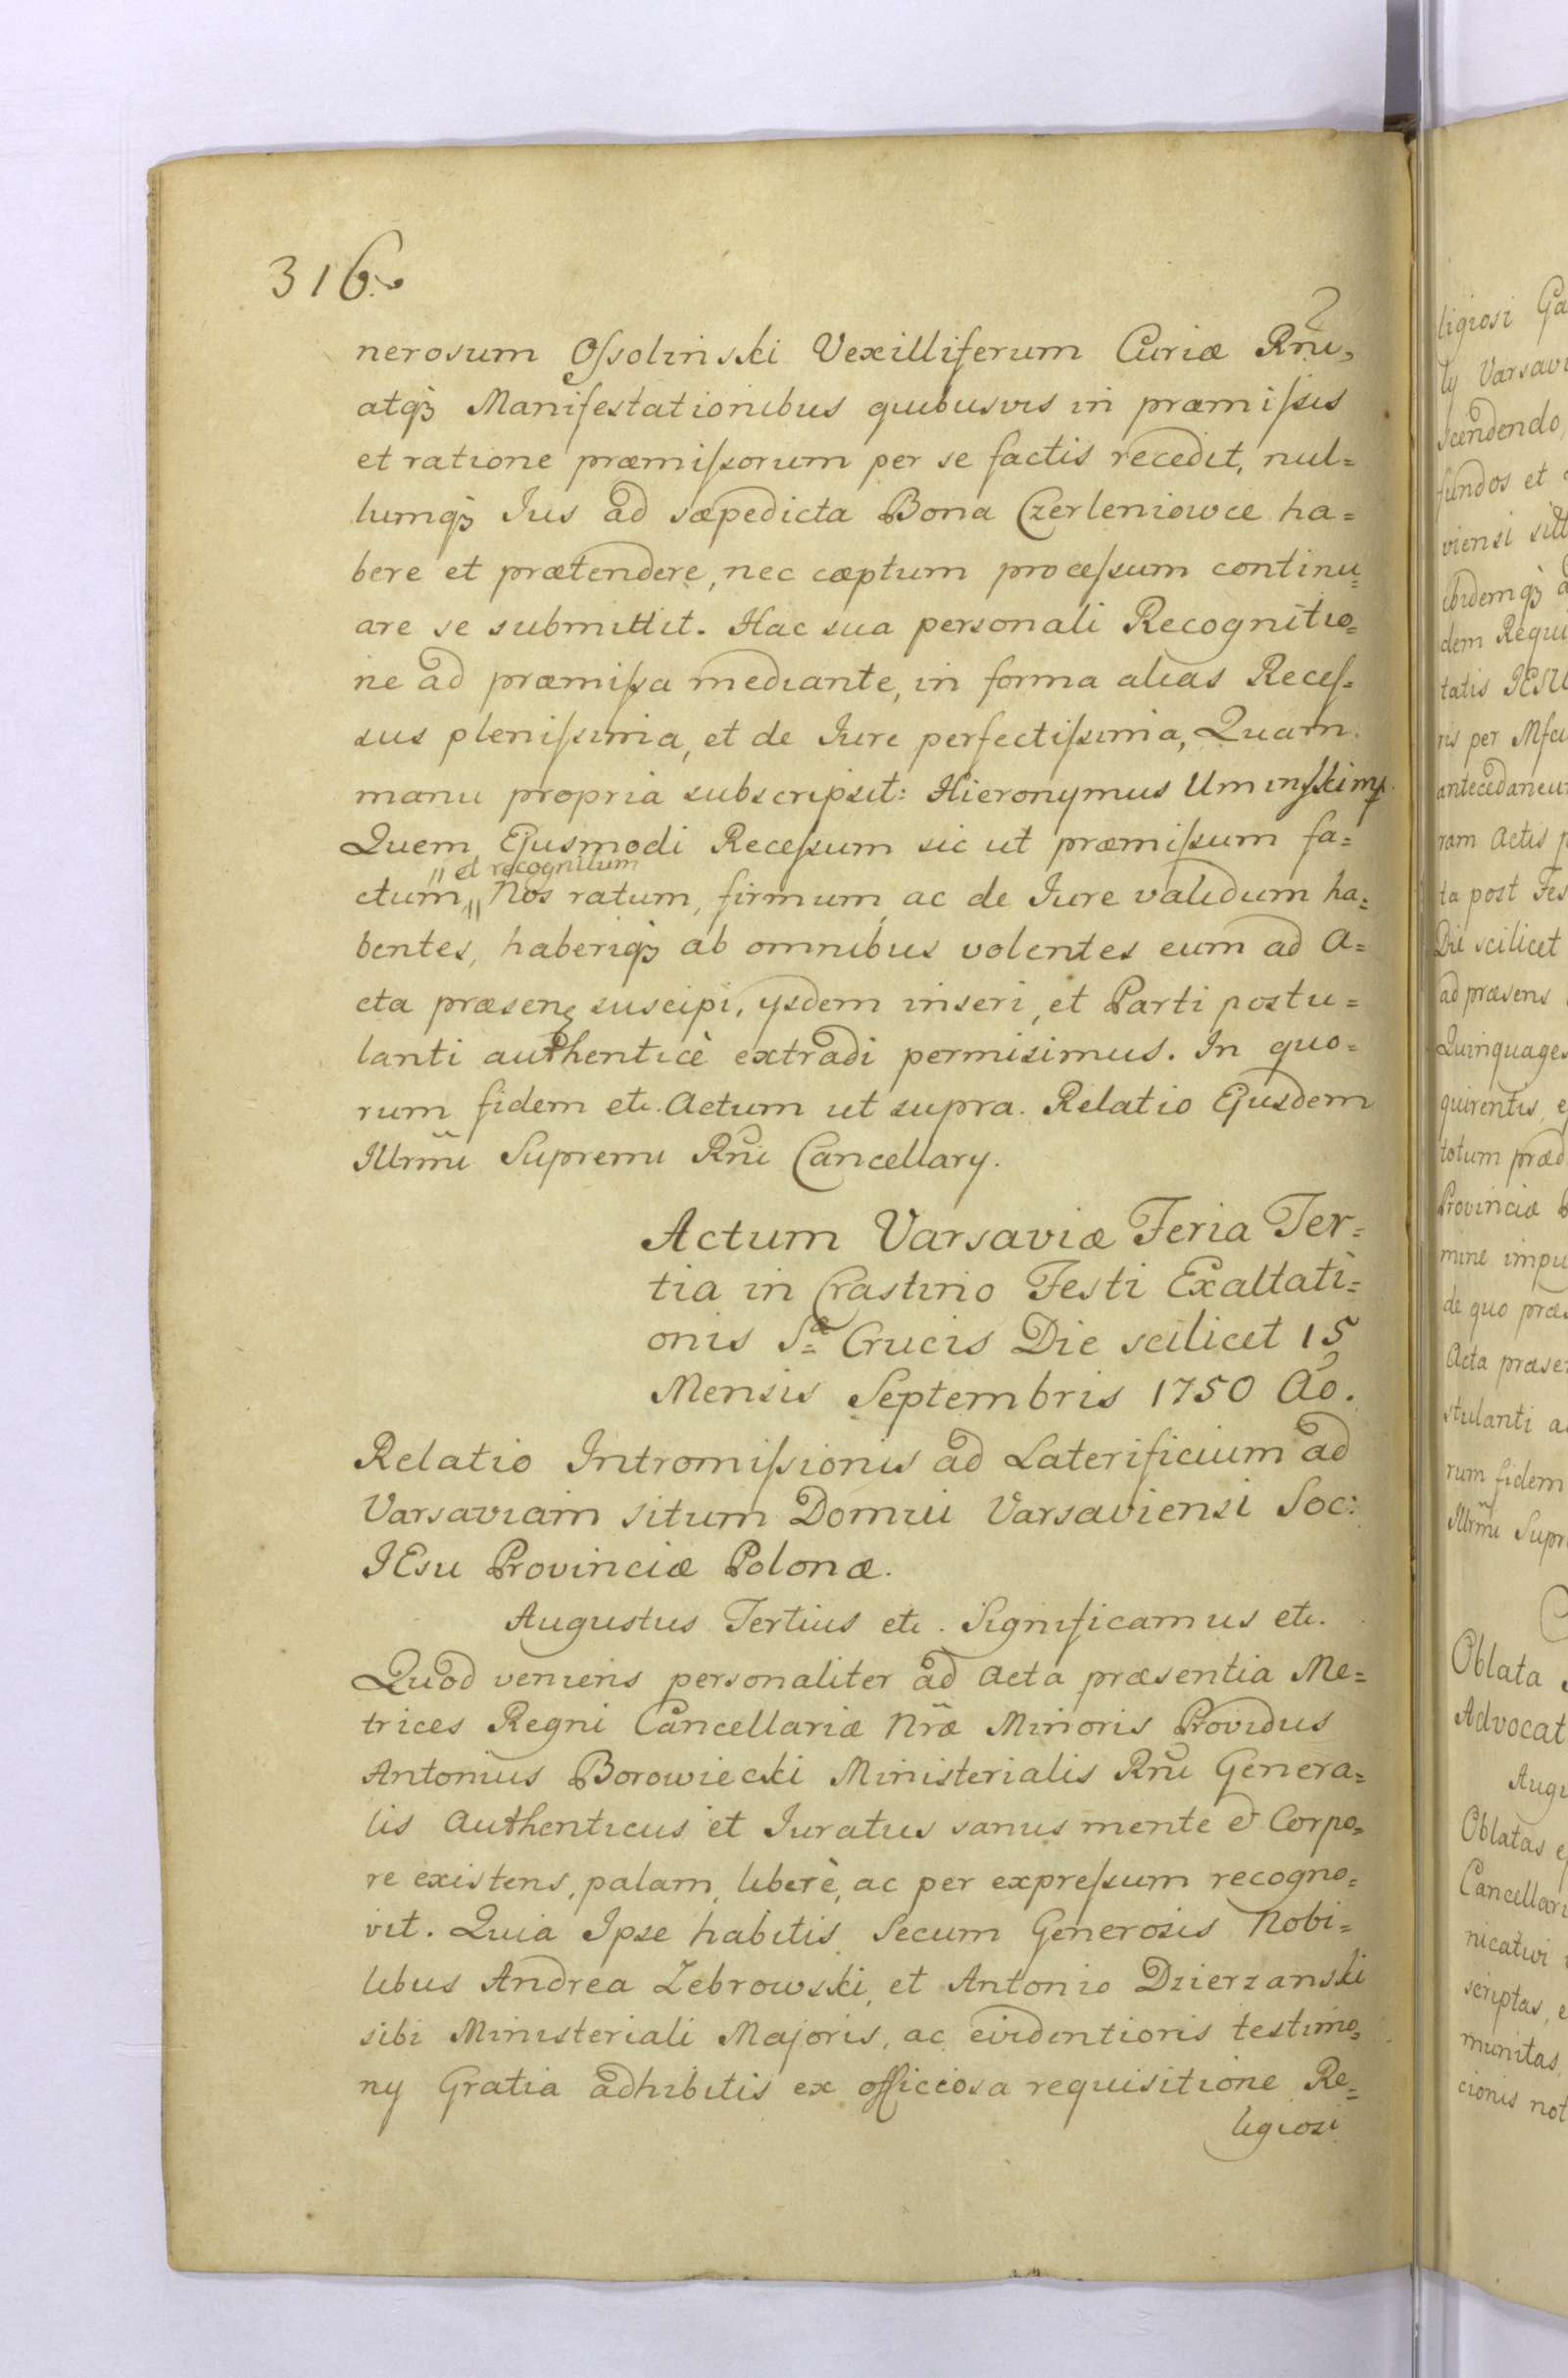 316.
nerosum Ossolinski Vexilliferum Curiæ Rñi,
atqꝫ Manifestationibus quibusvis in præmissis
et ratione præmissorum per se factis recedit, nul=
lumqꝫ Jus ad sæpedicta Bona Czerleniowce ha=
bere et prætendere, nec cæptum processum continu=
are se submittit. Hac sua personali Recognitio=
ne ad præmissa mediante, in forma alias Reces=
sus plenissima, et de Jure perfectissima, Quam
manu propria subscripsit: Hieronymus Uminsski mp.
Quem Ejusmodi Recessum sic ut præmissum fa=
" et recognitum
ctum," Nos ratum, firmum, ac de Jure validum ha=
bentes, haberiqꝫ ab omnibus volentes eum ad A=
cta præsen suscipi, ysdem inseri, et Parti postu=
lanti authenticè extradi permisimus. In quo=
rum fidem etc. Actum ut supra. Relatio Ejusdem
Illrmi Supremi Rñi Cancellary.
Actum Varsaviæ Feria Ter=
tia in Crastino Festi Exaltati=
onis Sæ Crucis Die scilicet 15
Mensis Septembris 1750 Ao.
Relatio Intromissionis ad Laterificium ad
Varsaviam situm Domui Varsaviensi Soc:
JEsu Provinciæ Polonæ.
Augustus Tertius etc. Significamus etc.
Quod veniens personaliter ad Acta præsentia Me=
trices Regni Cancellariæ Nræ Minoris Providus
Antonius Borowiecki Ministerialis Rñi Genera=
lis Authenticus et Juratus sanus mente & Corpo=
re existens, palam, liberè, ac per expressum recogno=
vit. Quia Ipse habitis Secum Generosis Nobi=
libus Andrea Zebrowski, et Antonio Dzierzanski
sibi Ministeriali Majoris, ac evidentioris testimo=
ny Gratia adhibitis ex officiosa requisitione Re=
ligiosi
ligiosi
ty Varsavi
scendendo,
fundos et
viensi
ibidemqꝫ
dem Requi
tatis JESU
ris per Mfci
antecedaneu
ram Actis p
ta post Fes
Die scilicet
ad præsens
Quinquages
quirentis, e
totum præd
Provinciæ
mine impu
de quo præs
Acta præse
stulanti a
rum fidem
Illrmi Supr
Oblata
Advocat
Augu
Oblatas e
Cancellari
nicativi
scriptas, e
munitas,
cionis not